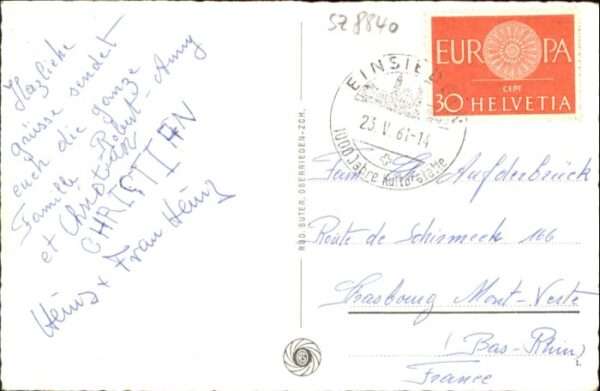 SZ 8840
Herzliche
grüsse sendet
euch die ganze
Familie Robert-Anny
et Christian
CHRISTIAN
Heinz + Frau Heinz
RUD. SUTER, OBERRIEDEN-ZCH.
EUROPA
CEPT
30 HELVETIA
EINSIEDELN
23 V 61-14
1000 Jahre Kulturstätte
Fam. Aufderbrück
Route de Schirmeck 166
Strasbourg Mont-Verte
(Bas-Rhin)
France